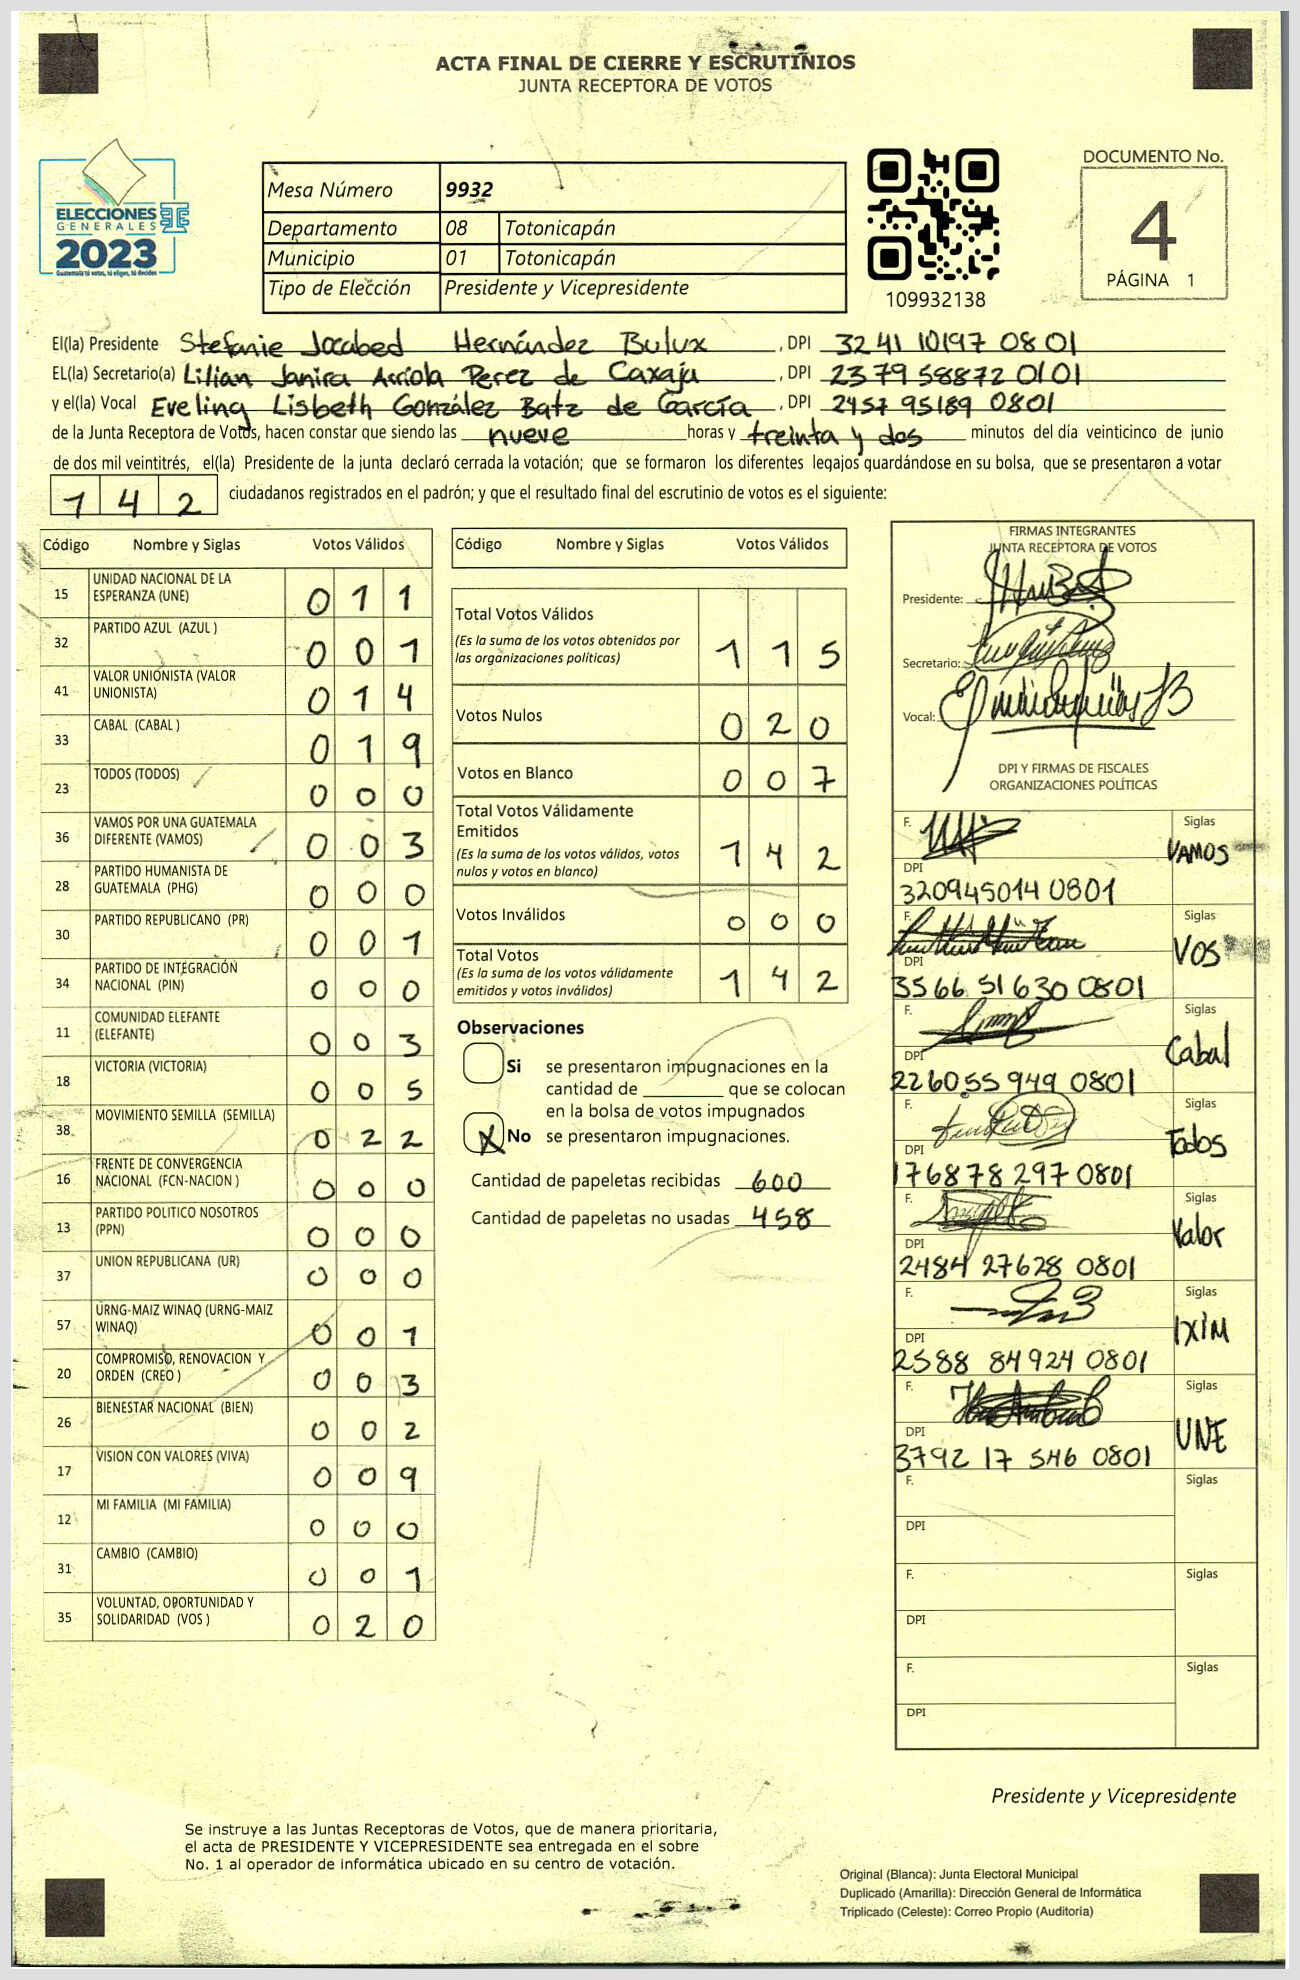 ACTA FINAL DE CIERRE Y ESCRUTINIOS
JUNTA RECEPTORA DE VOTOS
ELECCIONES
GENERALES
2023
Guatemala tú votas, tú eliges, tú decides
Mesa Número 9932
Departamento 08 Totonicapán
Municipio 01 Totonicapán
Tipo de Elección Presidente y Vicepresidente
109932138
DOCUMENTO No.
4
PÁGINA 1
El(la) Presidente Stefanie Jocabed Hernández Bulux , DPI 3241 10197 0801
EL(la) Secretario(a) Lilian Janira Arriola Perez de Caxaju , DPI 2379 58872 0101
y el(la) Vocal Eveling Lisbeth González Batz de García , DPI 2457 95189 0801
de la Junta Receptora de Votos, hacen constar que siendo las nueve horas y treinta y dos minutos del día veinticinco de junio
de dos mil veintitrés, el(la) Presidente de la junta declaró cerrada la votación; que se formaron los diferentes legajos guardándose en su bolsa, que se presentaron a votar
142 ciudadanos registrados en el padrón; y que el resultado final del escrutinio de votos es el siguiente:
Código Nombre y Siglas Votos Válidos
15 UNIDAD NACIONAL DE LA ESPERANZA (UNE) 011
32 PARTIDO AZUL (AZUL ) 001
41 VALOR UNIONISTA (VALOR UNIONISTA) 014
33 CABAL (CABAL ) 019
23 TODOS (TODOS) 000
36 VAMOS POR UNA GUATEMALA DIFERENTE (VAMOS) 003
28 PARTIDO HUMANISTA DE GUATEMALA (PHG) 000
30 PARTIDO REPUBLICANO (PR) 001
34 PARTIDO DE INTEGRACIÓN NACIONAL (PIN) 000
11 COMUNIDAD ELEFANTE (ELEFANTE) 003
18 VICTORIA (VICTORIA) 005
38 MOVIMIENTO SEMILLA (SEMILLA) 022
16 FRENTE DE CONVERGENCIA NACIONAL (FCN-NACION ) 000
13 PARTIDO POLITICO NOSOTROS (PPN) 000
37 UNION REPUBLICANA (UR) 000
57 URNG-MAIZ WINAQ (URNG-MAIZ WINAQ) 001
20 COMPROMISO, RENOVACION Y ORDEN (CREO ) 003
26 BIENESTAR NACIONAL (BIEN) 002
17 VISION CON VALORES (VIVA) 009
12 MI FAMILIA (MI FAMILIA) 000
31 CAMBIO (CAMBIO) 001
35 VOLUNTAD, OPORTUNIDAD Y SOLIDARIDAD (VOS ) 020
Código Nombre y Siglas Votos Válidos
Total Votos Válidos
(Es la suma de los votos obtenidos por las organizaciones politicas) 115
Votos Nulos 020
Votos en Blanco 007
Total Votos Válidamente Emitidos
(Es la suma de los votos válidos, votos nulos y votos en blanco) 142
Votos Inválidos 000
Total Votos
(Es la suma de los votos válidamente emitidos y votos inválidos) 142
Observaciones
Si se presentaron impugnaciones en la
cantidad de ________ que se colocan
en la bolsa de votos impugnados
X No se presentaron impugnaciones.
Cantidad de papeletas recibidas 600
Cantidad de papeletas no usadas 458
FIRMAS INTEGRANTES
JUNTA RECEPTORA DE VOTOS
Presidente:
Secretario:
Vocal:
DPI Y FIRMAS DE FISCALES
ORGANIZACIONES POLÍTICAS
F. Siglas VAMOS
DPI 320945014 0801
F. Siglas VOS
DPI 3566 51 630 0801
F. Siglas Cabal
DPI 226055 949 0801
F. Siglas Todos
DPI 176878 297 0801
F. Siglas Valor
DPI 2484 27628 0801
F. Siglas IXIM
DPI 2588 84924 0801
F. Siglas UNE
DPI 3792 17 546 0801
F. Siglas
DPI
F. Siglas
DPI
F. Siglas
DPI
Presidente y Vicepresidente
Se instruye a las Juntas Receptoras de Votos, que de manera prioritaria,
el acta de PRESIDENTE Y VICEPRESIDENTE sea entregada en el sobre
No. 1 al operador de informática ubicado en su centro de votación.
Original (Blanca): Junta Electoral Municipal
Duplicado (Amarilla): Dirección General de Informática
Triplicado (Celeste): Correo Propio (Auditoria)